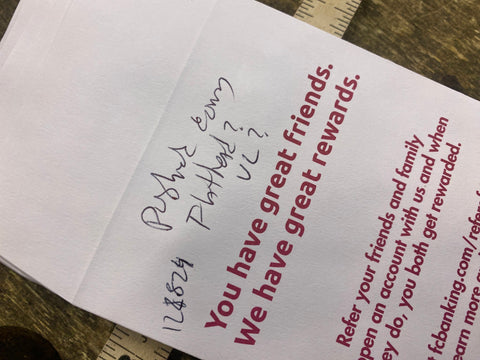 Pushed
?
UL?
128824
You have great friends.
We have great rewards.
Refer your friends and family
open an account with us and when
ey do, you both get rewarded.
fcbanking.com/refer
earn more